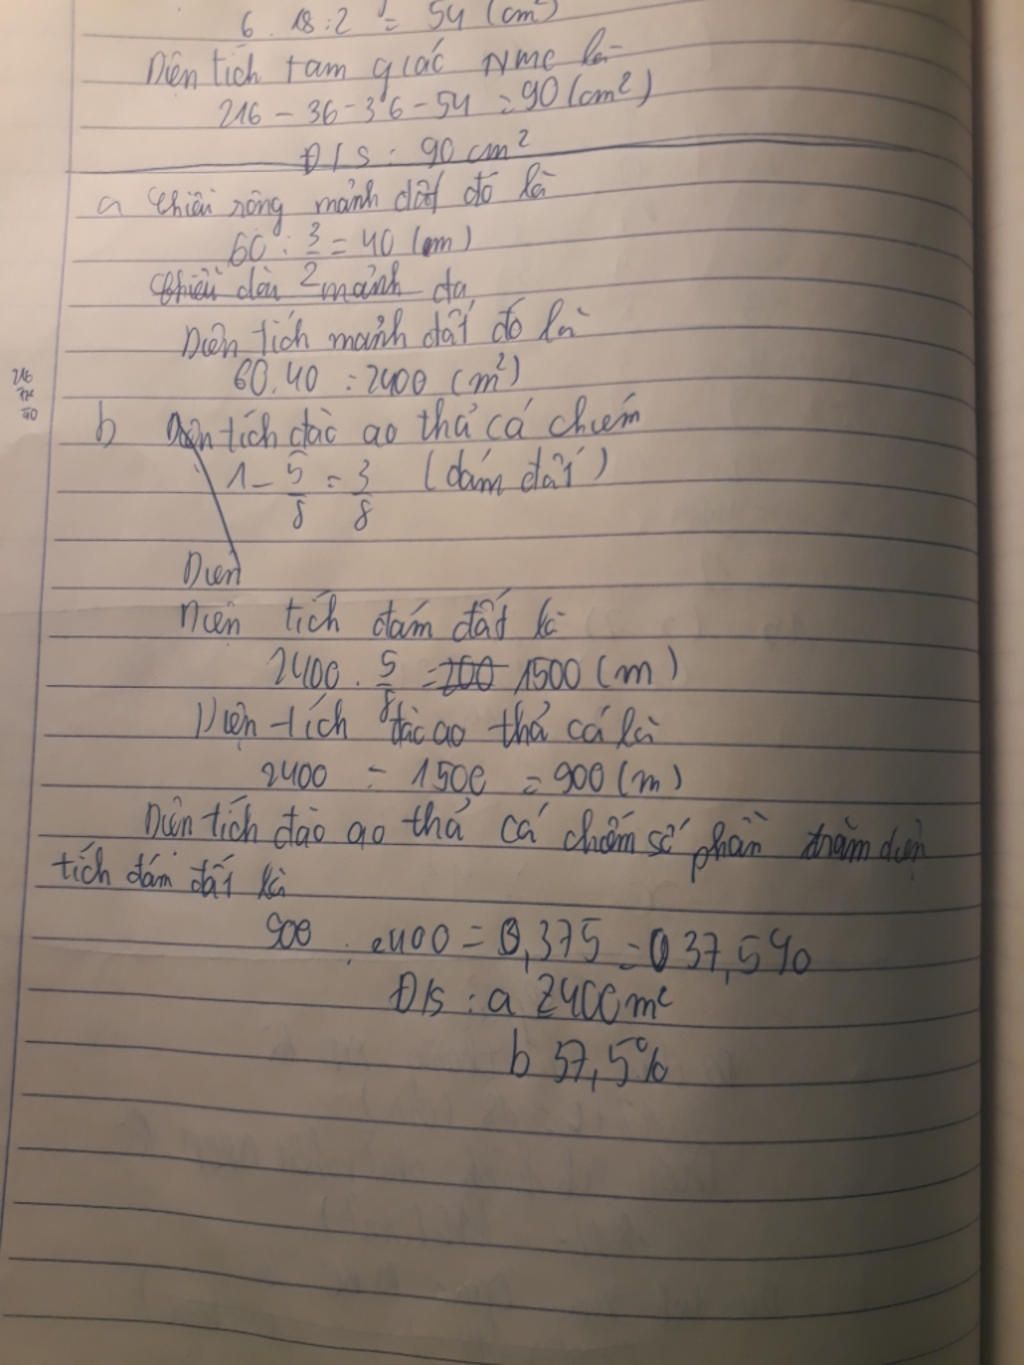 6 . 18 : 2 = 54 (cm²)
Diện tích tam giác NMC là
216 - 36 - 36 - 54 = 90 (cm²)
Đ/S : 90 cm²
a Chiều rộng mảnh đất đó là
60 : 3/2 = 40 (m)
Chiều dài mảnh đa
Diện tích mảnh đất đó là
60.40 = 2400 (m²)
216
b Diện tích đào ao thả cá chiếm
1 - 5/8 = 3/8 (đám đất)
Diện
Diện tích đám đất là
2400 . 5/8 = 200 1500 (m)
Diện tích đào ao thả cá là
2400 - 1500 = 900 (m)
Diện tích đào ao thả cá chiếm số phần trăm diện
tích đám đất là
900 : 2400 = 0,375 = 37,5%
Đ/S : a 2400 m²
b 37,5%